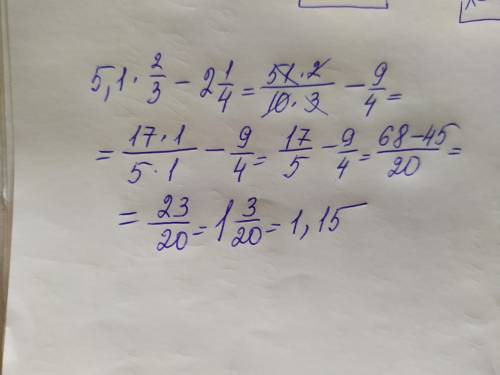 5,1 · 2/3 − 2 1/4 = 51·2/10·3 − 9/4 =
= 17·1/5·1 − 9/4 = 17/5 − 9/4 = 68−45/20 =
= 23/20 = 1 3/20 = 1,15